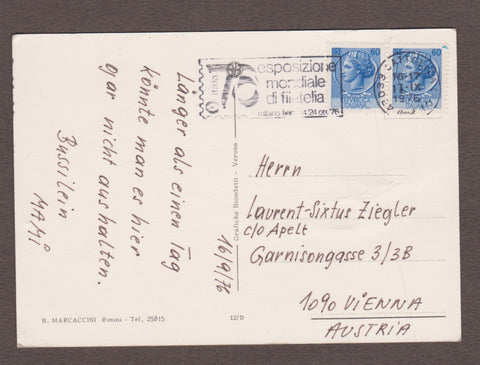 Länger als einen Tag
könnte man es hier
gar nicht aushalten.
Bussilein
MAMI
16/9/76
B. MARCACCINI Rimini - Tel. 25815
12/D
Grafiche Biondetti - Verona
italia 76
esposizione
mondiale
di filatelia
milano
14/24 ott. 76
60
60
CATTOLICA
16-17
47033
Herrn
Laurent-Sixtus Ziegler
c/o Apelt
Garnisongasse 3/3B
1090 VIENNA
AUSTRIA